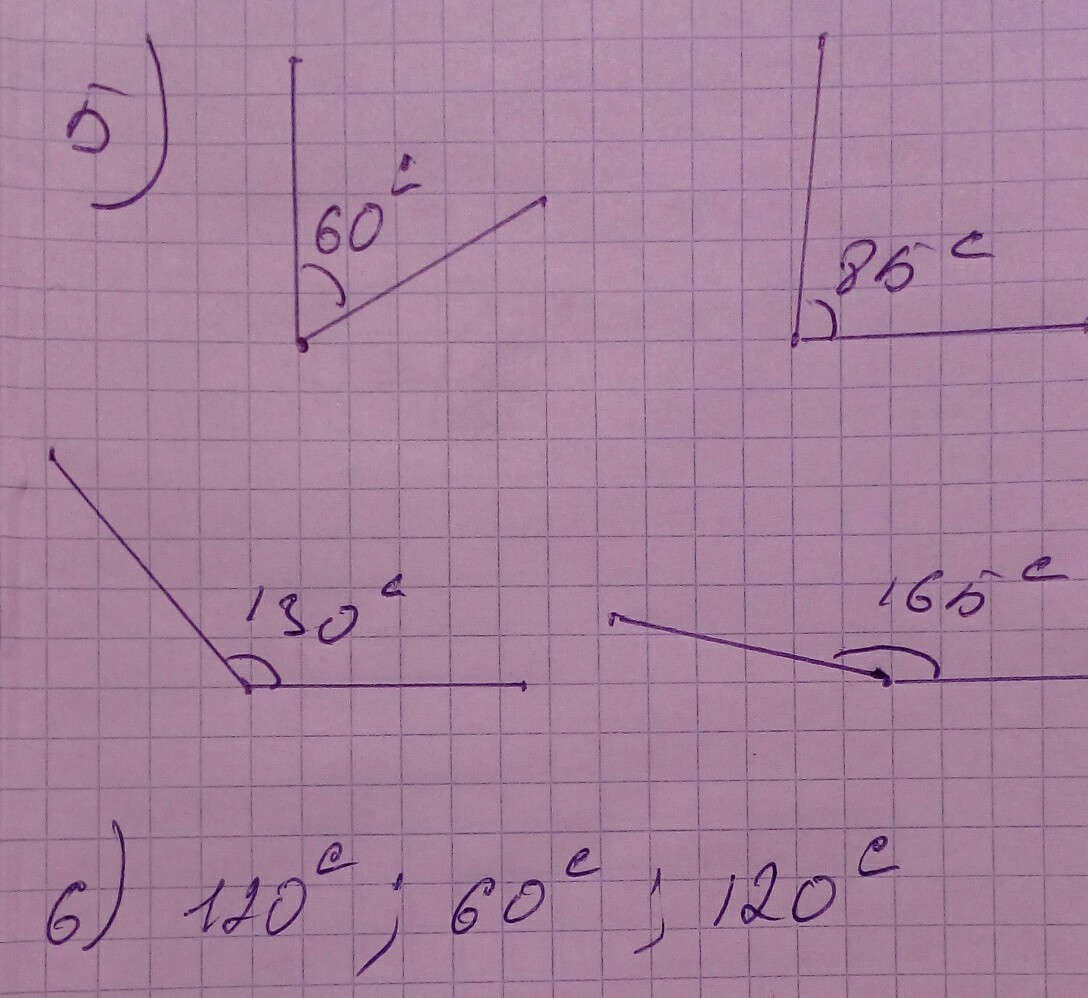 5)
60°
85°
130°
165°
6) 120°; 60°; 120°